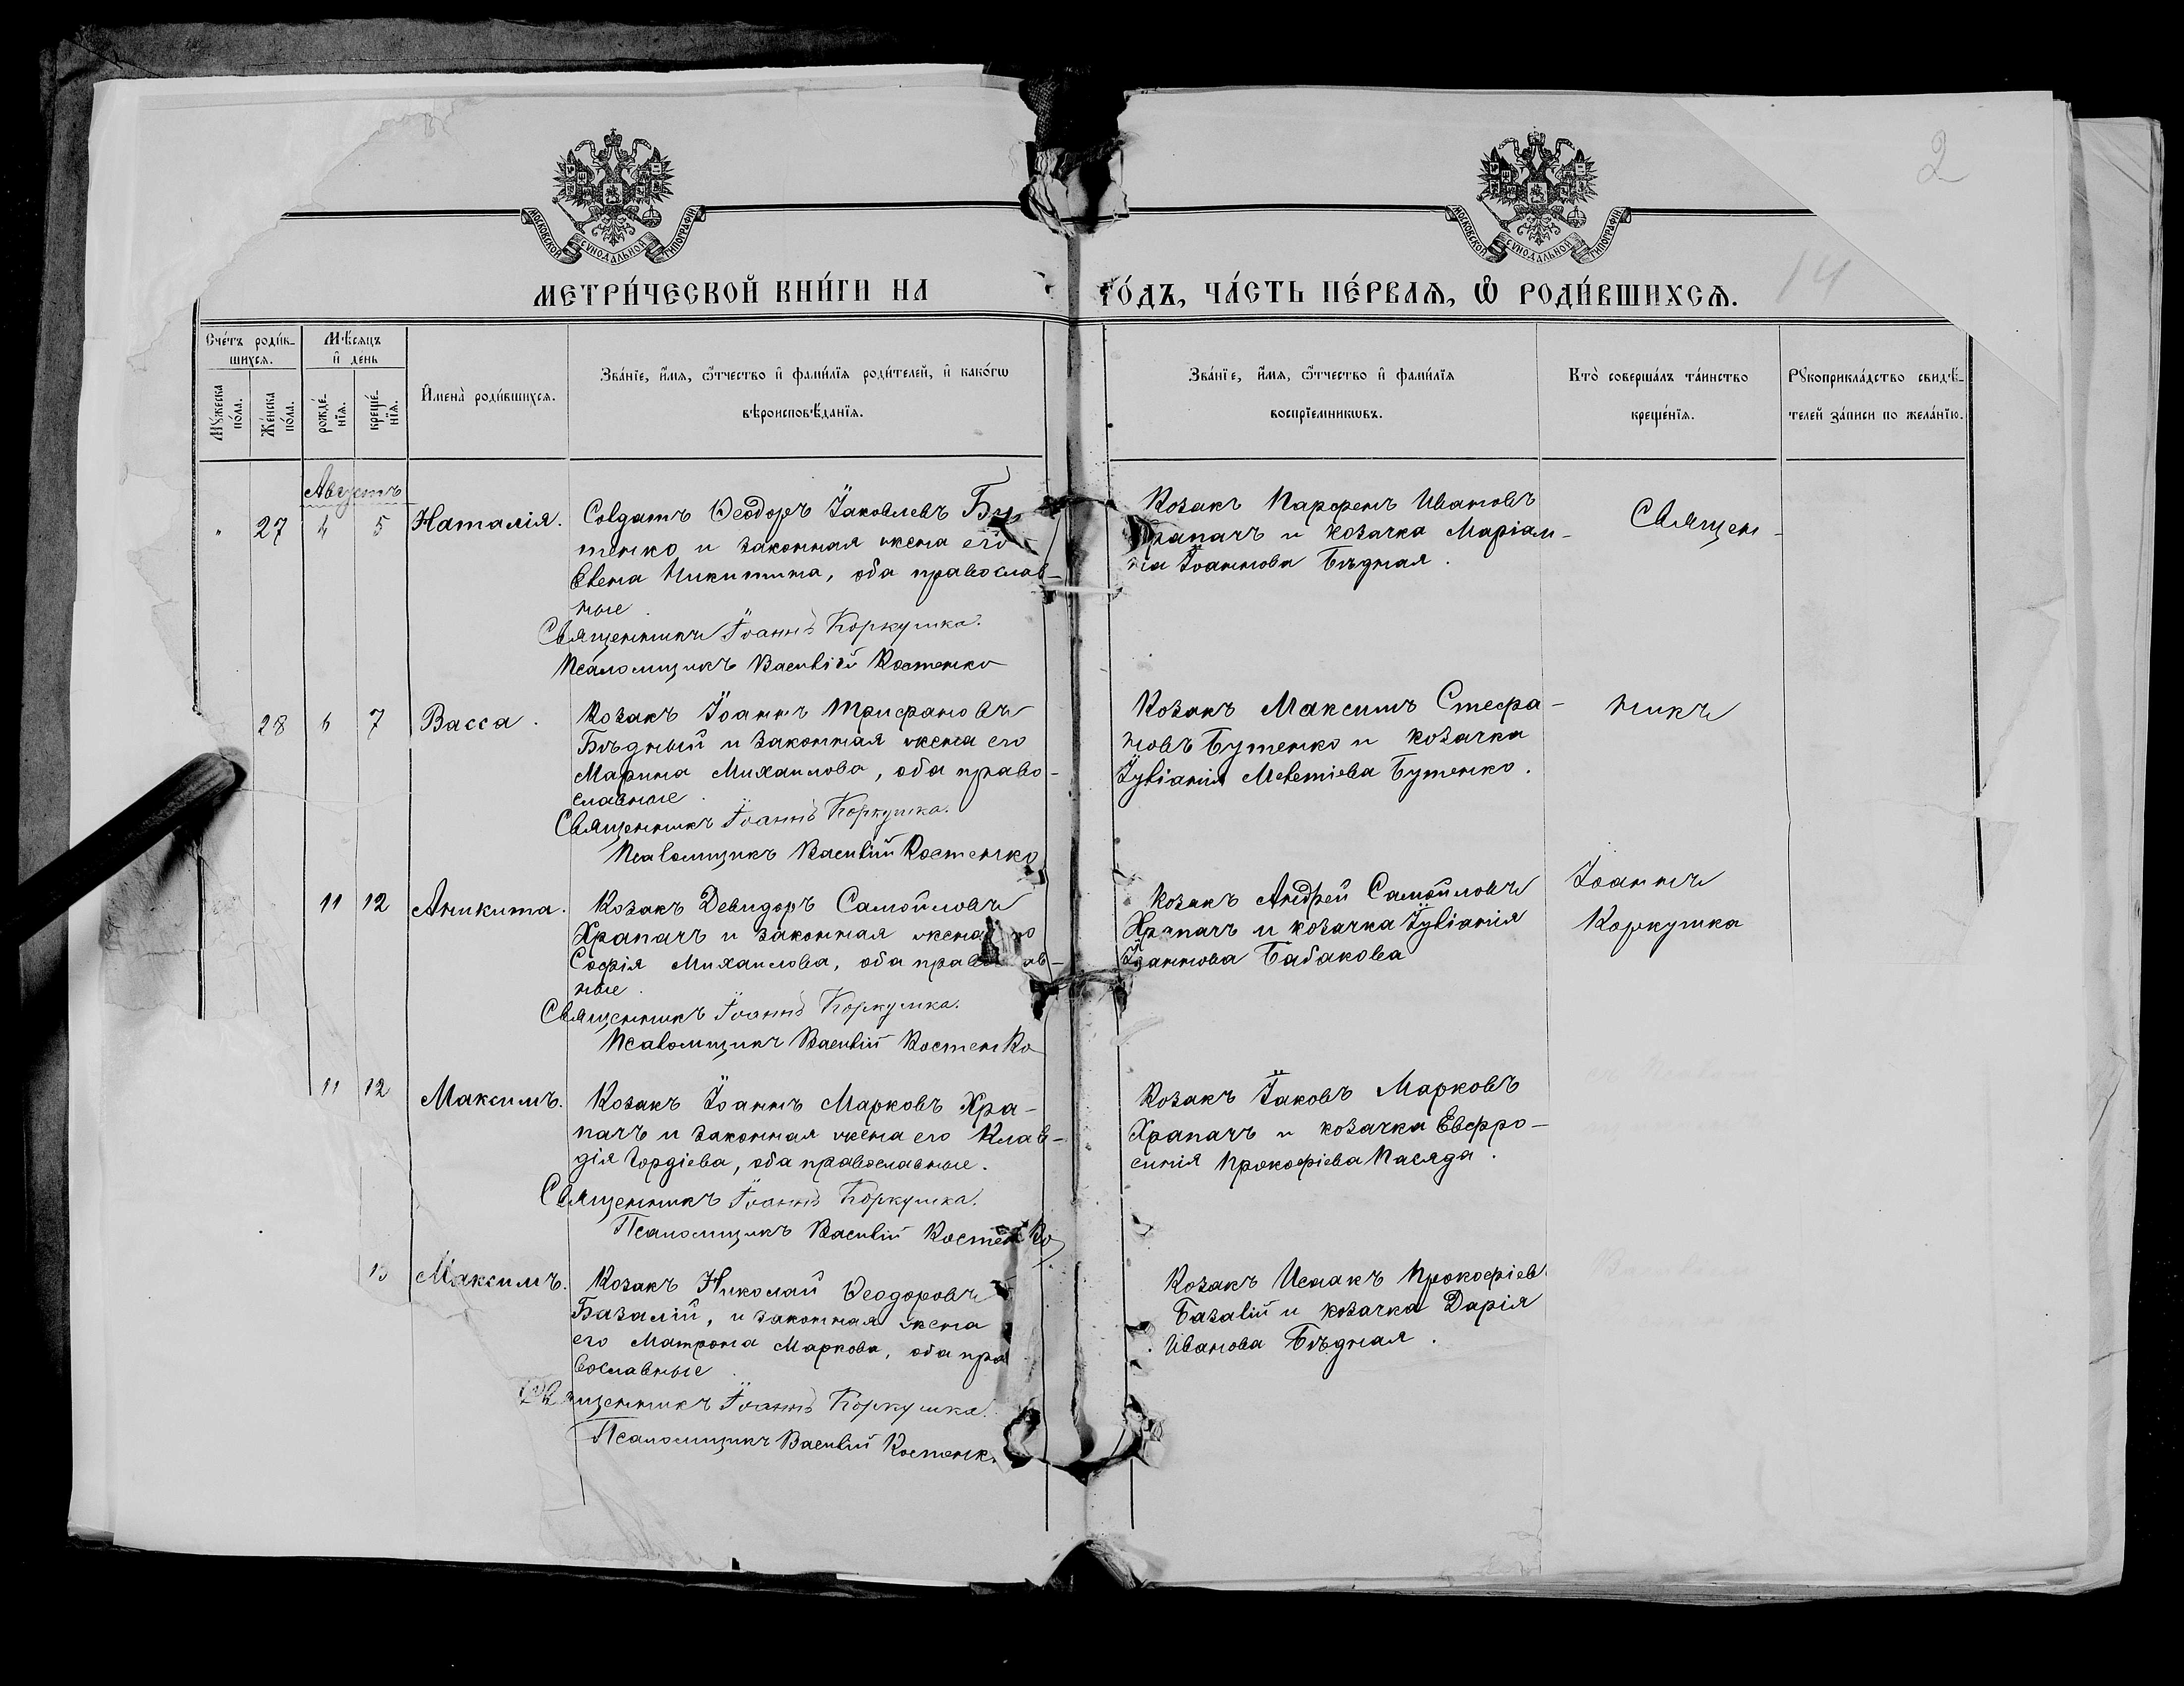 2
МОСКОВСКОЙ СѴНОДАЛЬНОЙ ТИПОГРАФІИ
МОСКОВСКОЙ СѴНОДАЛЬНОЙ ТИПОГРАФІИ
МЕТРИ́ЧЕСКОЙ КНИ́ГИ НА ГО́ДЪ, ЧА́СТЬ ПЕ́РВАѦ, Ѽ РОДИ́ВШИХСѦ. 14
Сче́тъ роди́в-
шихсѧ.
Мѣ́сѧцъ
и҆ де́нь
Мꙋ́жеска
по́ла.
Же́нска
по́ла.
рожде́-
нїѧ.
креще́-
нїѧ.
И҆мена̀ роди́вшихсѧ.
Зва́нїе, и҆́мѧ, ѻ҆́тчество и҆ фами́лїѧ роди́телей, и҆ како́гѡ
вѣроисповѣ́данїѧ.
Зва́нїе, и҆́мѧ, ѻ҆́тчество и҆ фами́лїѧ
воспрїемникѡвъ.
Кто̀ соверша́лъ та́инство
креще́нїѧ.
Рꙋкоприкла́дство свидѣ́-
телей за́писи по жела́нїю.
Августъ
" 27 4 5 Наталія. Солдатъ Ѳеодоръ Іаковлевъ Бу
тенко и законная жена его
Елена Никитина, оба православ-
ные.
Священникъ Іоаннъ Коркушка.
Псаломщикъ Василій Костенко
Козакъ Парфенъ Ивановъ
Храпачъ и козачка Маріам-
на Іоаннова Бѣдная.
Священ-
28 6 7 Васса. Козакъ Іоаннъ Трифановъ
Бѣдный и законная жена его
Марина Михаилова, оба право-
славные.
Священникъ Іоаннъ Коркушка.
Псаломщикъ Василій Костенко
Козакъ Максимъ Стефа-
новъ Бутенко и козачка
Іуліанія Мелетіева Бутенко.
никъ
11 12 Аникита. Козакъ Девидоръ Самойловъ
Храпачъ и законная жена его
Софія Михаилова, оба православ-
ные.
Священникъ Іоаннъ Коркушка.
Псаломщикъ Василій Костенко
Козакъ Андрей Самойловъ
Храпачъ и козачка Іуліанія
Іоаннова Бабакова
Іоаннъ
Коркушка
11 12 Максимъ. Козакъ Іоаннъ Марковъ Хра-
пачъ и законная жена его Клав-
дія Гордіева, оба православные.
Священникъ Іоаннъ Коркушка.
Псаломщикъ Василій Костенко
Козакъ Іаковъ Марковъ
Храпачъ и козачка Евфро-
синія Прокофіева Пасяда.
Максимъ. Козакъ Николай Ѳеодоровъ
Базалій, и законная жена
его Матрона Маркова, оба пра
вославные.
Священникъ Іоаннъ Коркушка.
Псаломщикъ Василій Костенк
Козакъ Исаакъ Прокофіев
Базалій и козачка Дарія
Иванова Бѣдная.